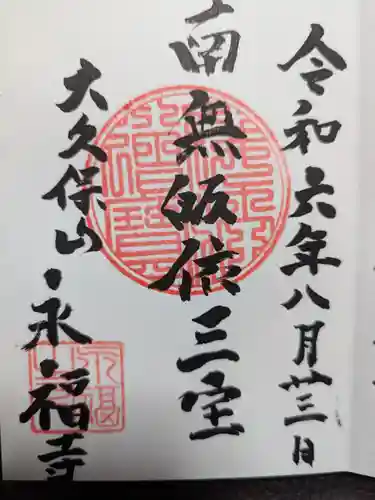 令和六年八月廿三日
南無皈依三宝
大久保山
永福寺